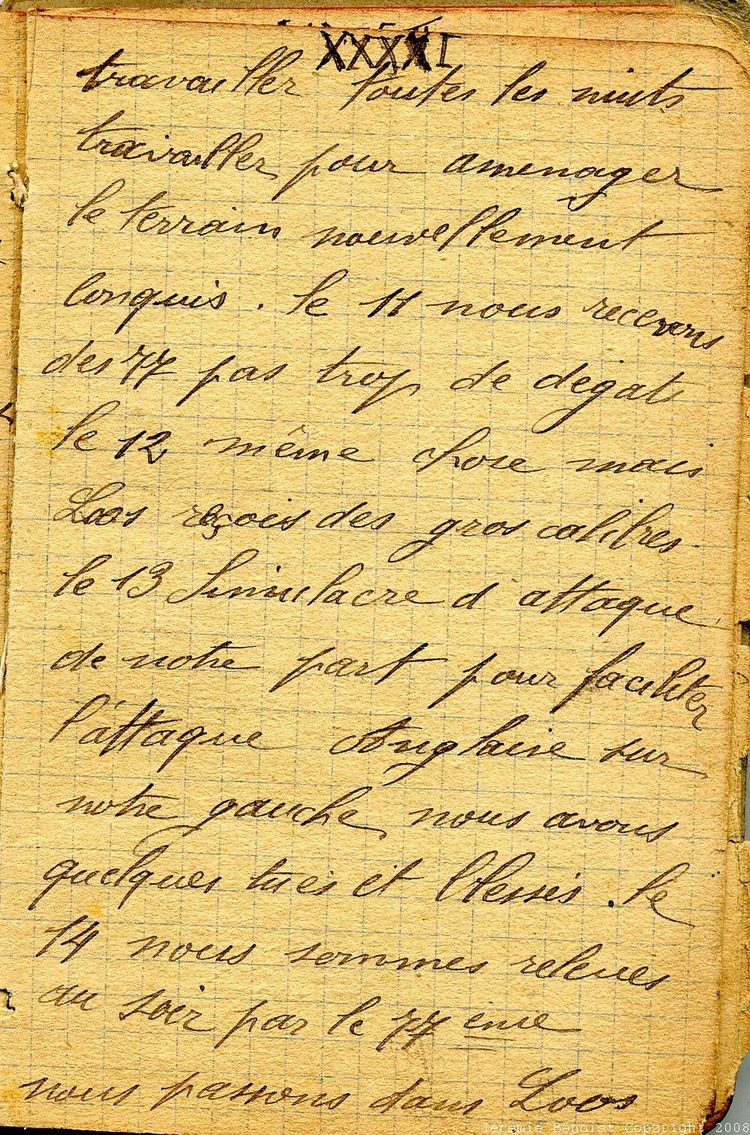 XXXXI
travailler toutes les nuits
travailler pour aménager
le terrain nouvellement
conquis. le 11 nous recevons
des 77 pas trop de dégats
le 12 même chose mais
Loos reçois des gros calibres
le 13 Simulacre d'attaque
de notre part pour faciliter
l'attaque Anglaise sur
notre gauche, nous avons
quelques tués et blessés. le
14 nous sommes relevés
au soir par le 77 ème
nous passons dans Loos
Jeremie Benoist Copyright 2008